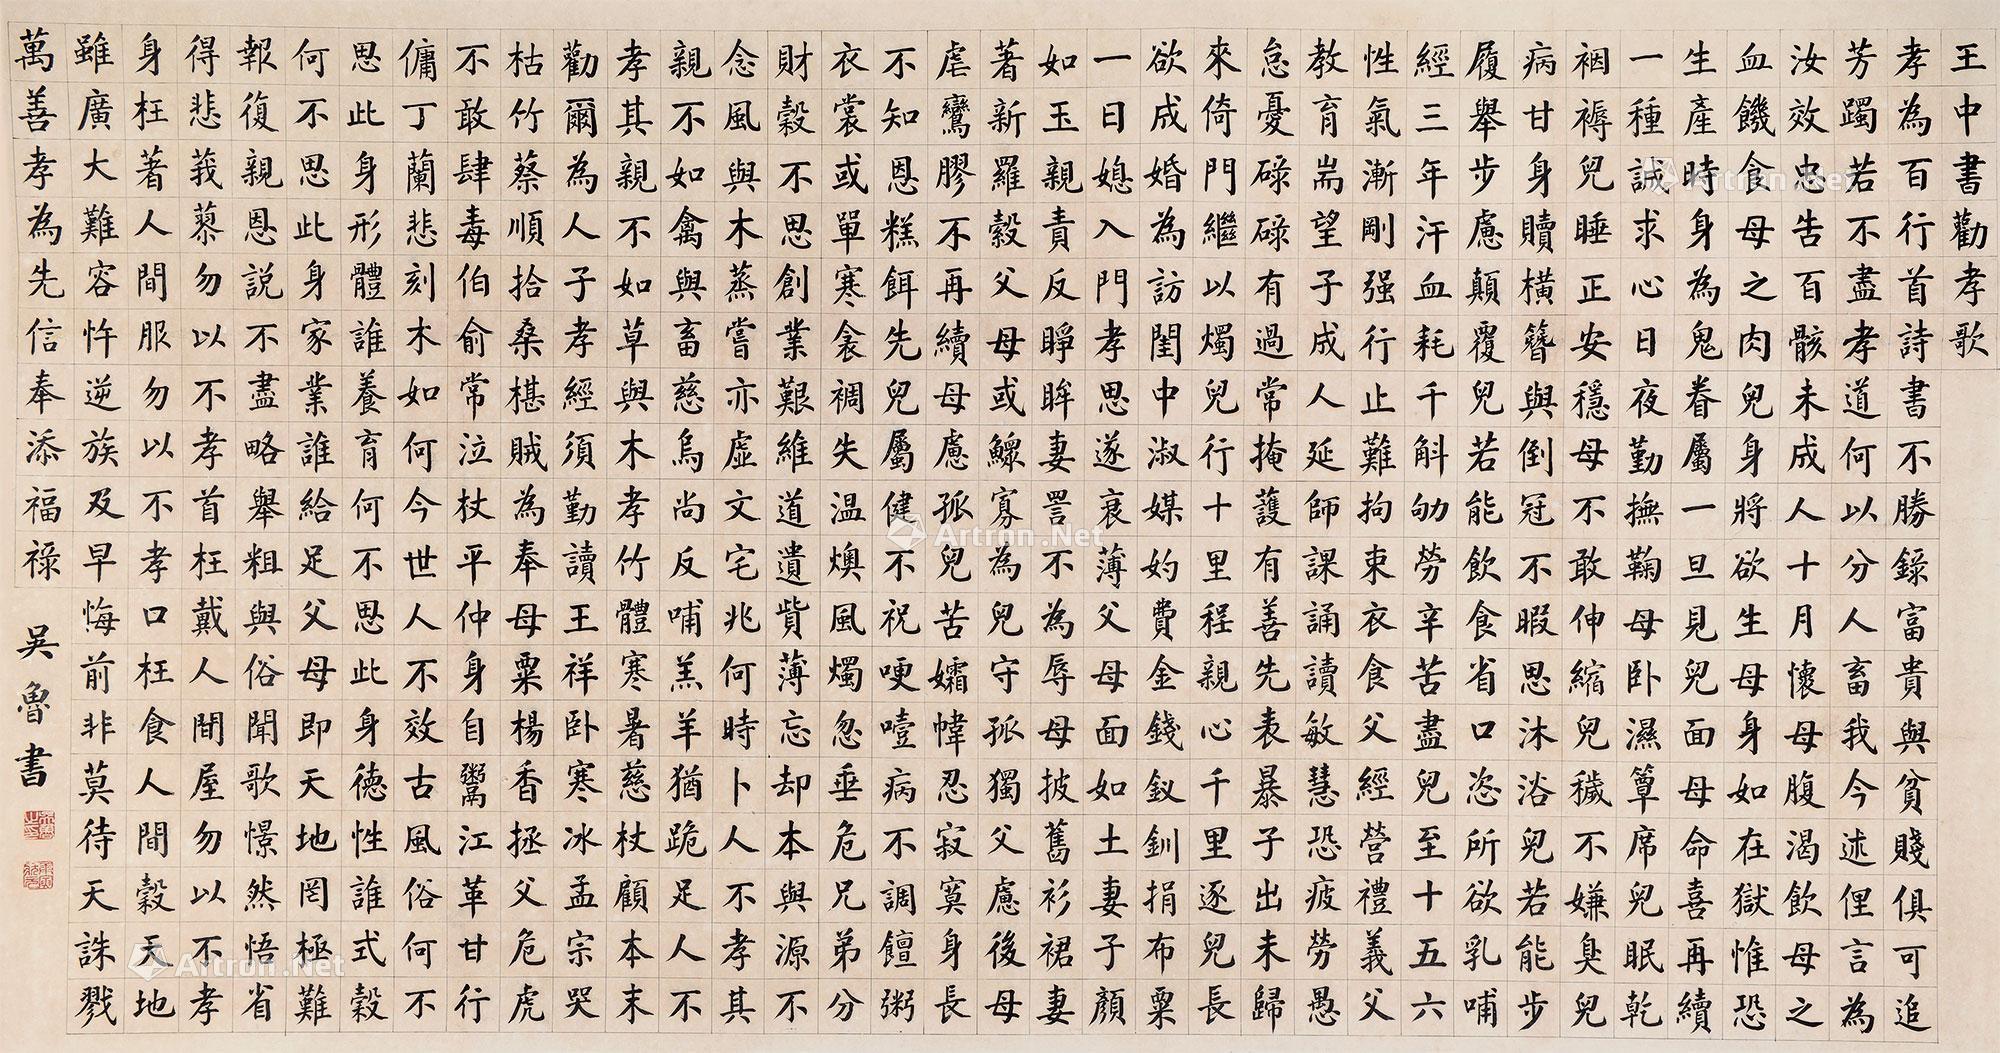 王中書勸孝歌
孝為百行首詩書不勝錄富貴與貧賤俱可追
芳躅若不盡孝道何以分人畜我今述俚言為
汝效忠告百骸未成人十月懷母腹渴飲母之
血饑食母之肉兒身將欲生母身如在獄惟恐
生產時身為鬼眷屬一旦見兒面母命喜再續
一種誠求心日夜勤撫鞠母臥濕簟席兒眠乾
裀褥兒睡正安穩母不敢伸縮兒穢不嫌臭兒
病甘身贖橫簪與倒冠不暇思沐浴兒若能步
履舉步慮顛覆兒若能飲食省口恣所欲乳哺
經三年汗血耗千斛劬勞辛苦盡兒至十五六
性氣漸剛强行止難拘束衣食父經營禮義父
教育耑望子成人延師課誦讀敏慧恐疲勞愚
怠憂碌碌有過常掩護有善先表暴子出未歸
來倚門繼以燭兒行十里程親心千里逐兒長
欲成婚為訪閨中淑媒妁費金錢釵釧捐布粟
一日媳入門孝思遂衰薄父母面如土妻子顏
如玉親責反睜眸妻詈不為辱母披舊衫裙妻
著新羅縠父母或鰥寡為兒守孤獨父慮後母
虐鸞膠不再續母慮孤兒苦孀幃忍寂寞身長
不知恩糕餌先兒屬健不祝哽噎病不調饘粥
衣裳或單寒衾裯失溫燠風燭忽垂危兄弟分
財穀不思創業艱維道遺貲薄忘却本與源不
念風與木蒸嘗亦虛文宅兆何時卜人不孝其
親不如禽與畜慈烏尚反哺羔羊猶跪足人不
孝其親不如草與木孝竹體寒暑慈杖顧本末
勸爾為人子孝經須勤讀王祥臥寒冰孟宗哭
枯竹蔡順拾桑椹賊為奉母粟楊香拯父危虎
不敢肆毒伯俞常泣杖平仲身自鬻江革甘行
傭丁蘭悲刻木如何今世人不效古風俗何不
思此身形體誰養育何不思此身德性誰式穀
何不思此身家業誰給足父母即天地罔極難
報復親恩說不盡略舉粗與俗聞歌憬然悟省
得悲莪蓼勿以不孝首枉戴人間屋勿以不孝
身枉著人間服勿以不孝口枉食人間穀天地
雖廣大難容忤逆族及早悔前非莫待天誅戮
萬善孝為先信奉添福祿
吳魯書
Artron.Net
Artron.Net
Artron.Net